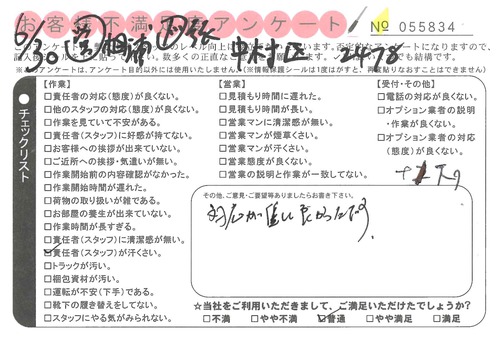 お客様不満足アンケート
№ 055834
6/30
中村区
24718
※このアンケートは、アンケート目的以外には使用いたしません。(※情報保護シールは1度はがすと、再度貼りなおすことはできません)
チェックリスト
【作業】
□責任者の対応(態度)が良くない。
□他のスタッフの対応(態度)が良くない。
□作業を見ていて不安がある。
□責任者(スタッフ)に好感が持てない。
□お客様への挨拶が出来ていない。
□ご近所への挨拶・気遣いが無い。
□作業開始前の内容確認がなかった。
□作業開始時間が遅れた。
□荷物の取り扱いが雑である。
□お部屋の養生が出来ていない。
□作業時間が長すぎる。
□責任者(スタッフ)に清潔感が無い。
☑責任者(スタッフ)が汗くさい。
□トラックが汚い。
□梱包資材が汚い。
□運転が不安(下手)である。
□靴下の履き替えをしてない。
□スタッフにやる気がみられない。
【営業】
□見積もり時間に遅れた。
□見積もり時間が長い。
□営業マンに清潔感が無い。
□営業マンが煙草くさい。
□営業マンが汗くさい。
□営業態度が良くない。
□営業の説明と作業が一致してない。
【受付・その他】
□電話の対応が良くない。
□オプション業者の説明
・作業が良くない。
□オプション業者の対応
(態度)が良くない。
その他、ご意見・ご要望等ありましたらお書き下さい。
☆当社をご利用いただきまして、ご満足いただけたでしょうか?
□不満 □やや不満 ☑普通 □やや満足 □満足